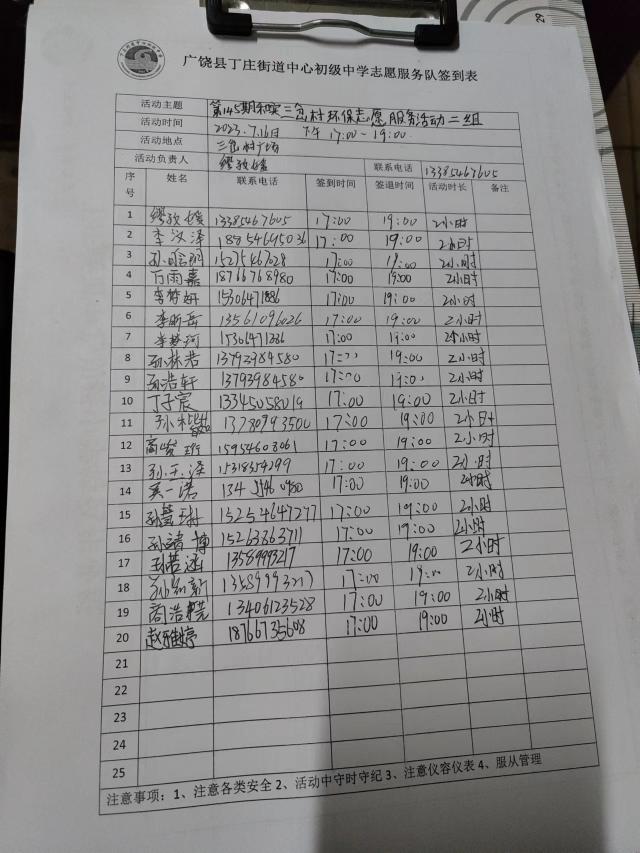 广饶县丁庄街道中心初级中学志愿服务队签到表
活动主题 第145期 三岔村环保志愿服务活动二组
活动时间 2023.7.16日 下午 17:00-19:00
活动地点 三岔村广场
活动负责人 缪孜媛 联系电话 13385467605
序号 姓名 联系电话 签到时间 签退时间 活动时长 备注
1 缪孜媛 13385467605 17:00 19:00 2小时
2 李汶泽 18854695036 17:00 19:00 2小时
3 17:00 19:00 2小时
4 万雨嘉 18766768980 17:00 19:00 2小时
5 李梦妍 17:00 19:00 2小时
6 李昕岳 13561096026 17:00 19:00 2小时
7 李梦珂 15306471286 17:00 19:00 2小时
8 孙林浩 13793984580 17:00 19:00 2小时
9 孙浩轩 13793984580 17:00 19:00 2小时
10 丁子宸 13345058019 17:00 19:00 2小时
11 13780993500 17:00 19:00 2小时
12 商峻珩 15954608061 17:00 19:00 2小时
13 孙玉泽 15318354299 17:00 19:00 2小时
14 吴一诺 17:00 19:00 2小时
15 15254647277 17:00 19:00 2小时
16 孙靖博 15263863711 17:00 19:00 2小时
17 13589993217 17:00 19:00 2小时
18 13589993217 17:00 19:00 2小时
19 商浩然 13406123528 17:00 19:00 2小时
20 赵雅婷 18766735608 17:00 19:00 2小时
21
22
23
24
25
注意事项：1、注意各类安全 2、活动中守时守纪 3、注意仪容仪表 4、服从管理